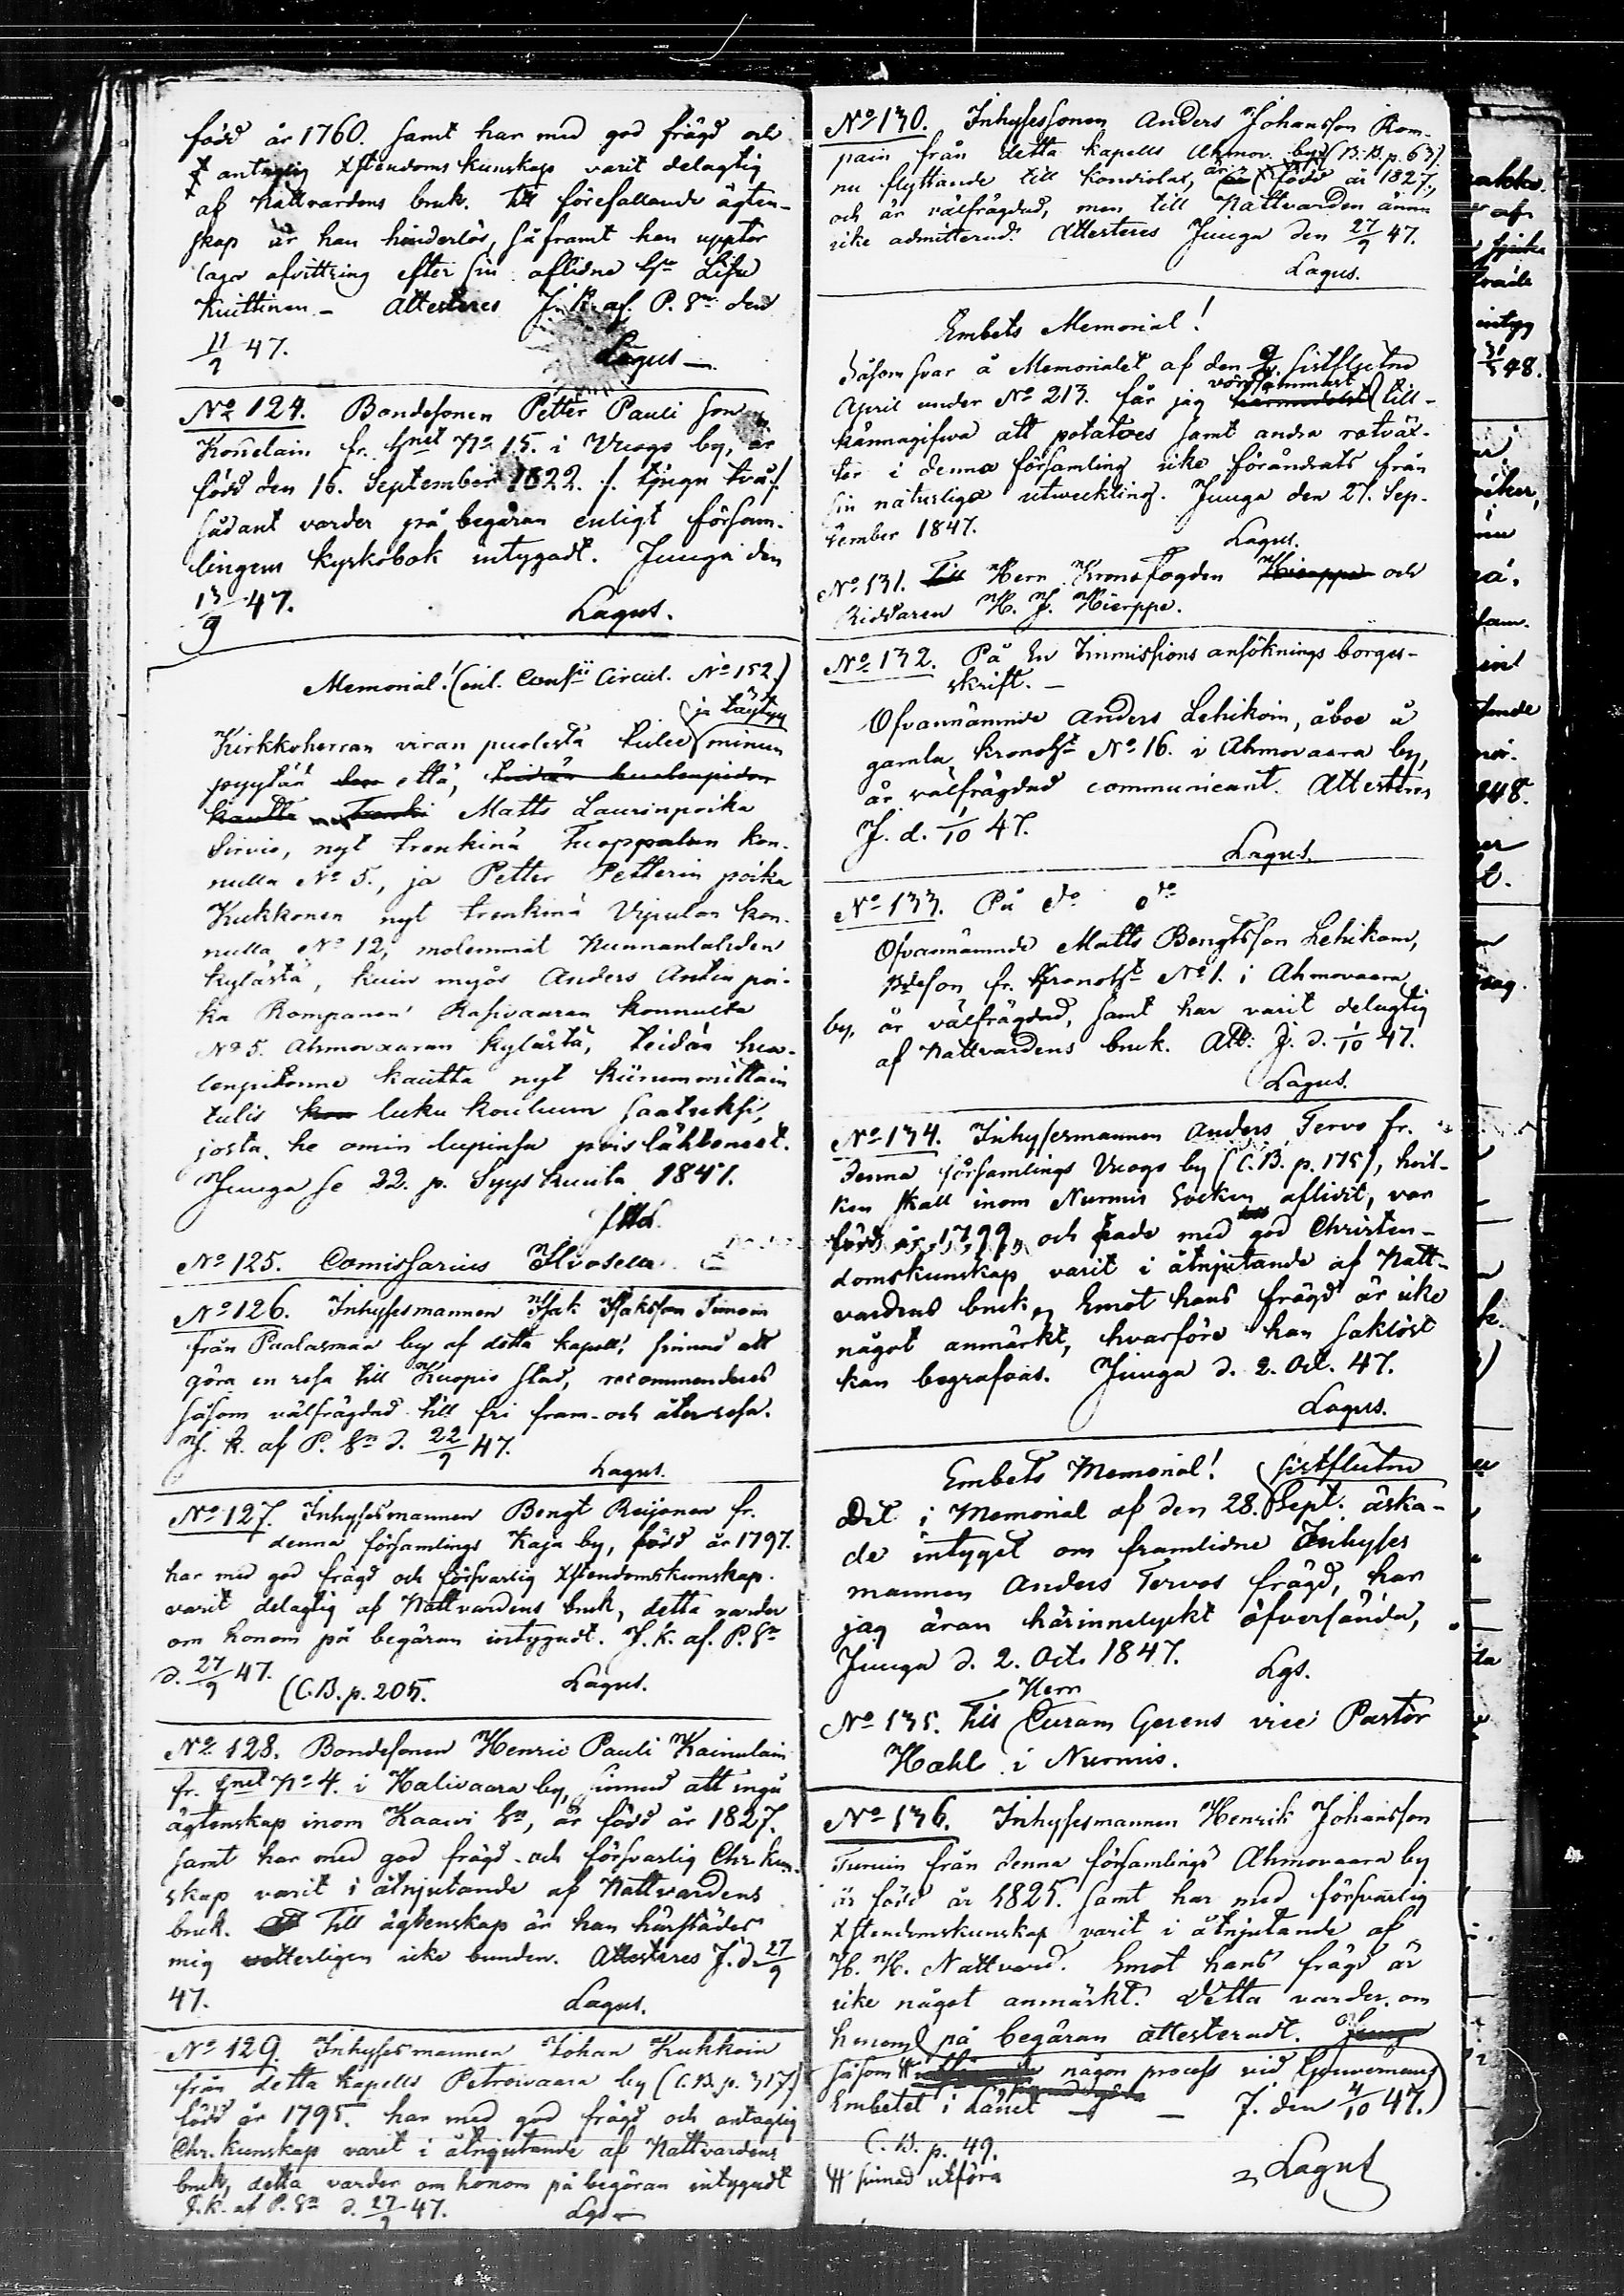 född år 1760. samt har med god frägd och
antaglig Xstendoms kunskap varit delagtig
af Nattvardens bruk. Till förefallande ägten-
skap är han hinderlös, såframt han upptar
laga afvittring efter sin aflidne hu Lisa
Kuittinen – Attesteres J. K. af P. Sn den
11/9 47. Lagus –
No 124. Bondesonen Petter Pauli son
fr. hmt No 15. i Vuogo by, är
född den 16. September 1822. /. tjugu två ./
sådant varder på begäran enligt försam-
lingens kyrkobok intygadt. Juuga den
13/9 47. Lagus.
Memorial! (enl. Consii Circul. No 152.)
ja täytyy
Kirkkoherran viran puolesta tulee minun
pyytää että,
Matts Laurinpoika
Sirvio, nyt trenkinä Tuoppalan kon-
nulla No 5., ja Petter Petterin poika
Kukkonen nyt trenkinä Vipulan kon-
nulla No 12, molemmat Nunnanlahden
kylästä, kuin myös Anders Antin poi-
ka Kompanen Rasivaaran konnulta
No 5. Ahmovaaran kylästä, teidän huo-
lenpitonne kautta nyt kiirummittain
tulis luku kouluun saatuksi,
josta he omin lupinsa pois lähteneet.
Juuga se 22. p. Syys kuuta 1847.
No 125. Comissarius
No 126. Inhysesmannen Isak Isaksson Timoin
från Paalasmaa by af detta kapell, sinnad att
göra en resa till Kuopio stad, recommenderas
såsom välfrägdad till fri fram- och återresa.
J. K. af P. Sn d. 22/9 47.
Lagus.
No 127. Inhysesmannen Bengt Reijonen fr.
denna församlings Kaja by, född år 1797.
har med god frägd och försvarlig Xstendomskunskap
varit delagtig af Nattvardens bruk, detta varder
om honom på begäran intygadt. J. K. af P. Sn
d. 27/9 47. (C.B. p. 205. Lagus.
No 128. Bondesonen Henric Pauli Kainulain
fr. hmt No 4. i Halivaara by, sinnad att ingå
ägtenskap inom Kaawi Sn, är född år 1827.
samt har med god frägd och försvarlig Chr. kun-
skap varit i åtnjutande af Nattvardens
bruk. Till ägtenskap är han härstädes
mig veterligen icke bunden. Attesteres J. d. 27/9
47. Lagus.
No 129. Inhysesmannen Johan Kukkoin
från detta kapells Petrovaara by (C.B. p. 317)
född år 1795. har med god frägd och antaglig
Chr. kunskap varit i åtnjutande af Nattvardens
bruk, detta varder om honom på begäran intygadt
J. K. af P. Sn d. 27/9 47. Lgs
No 130. Inhysessonen Anders Johansson Kom-
pain från detta kapells Ahmov. by (B.B. p. 63).
nu flyttande till Kondiolax, är född år 1827,
och är välfrägdad, men till Nattvarden ännu
icke admitterad. Attesteres Juuga den 27/9 47.
Lagus.
Embets Memorial!
Såsom svar å Memorialet af den sistflutne
April under No 213. får jag vördsammast till-
kännagifva att potatoes samt andra rotväx-
ter i denna församling icke förändrats från
sin naturliga utveckling. Juuga den 27. Sep-
tember 1847. Lagus.
No 131. Till Herr Kronofogden Hierppe och
Riddaren H. J. Hierppe.
No 132. På En Immissions ansöknings borges-
skrift. –
Ofvannämnde Anders Lehikoin, åboe å
gamla kronohst No 16. i Ahmovaara by,
är välfrägdad communicant. Attesteres
J. d. 1/10 47.
Lagus.
No 133. På do do
Ofvannämnde Matts Bengtsson Lehikoin,
Bdeson fr. Kronohst No 1. i Ahmovaara
by, är välfrägdad, samt har varit delagtig
af Nattvardens bruk. Att: J. d. 1/10 47.
Lagus.
No 134. Inhysesmannen Anders Tervo fr.
denna församlings Vuogo by (C.B. p. 175), hvil-
ken skall inom Nurmis Socken aflidit, var
född år 1799, och hade med god Christen-
domskunskap varit i åtnjutande af Natt-
vardens bruk, Emot hans frägd är icke
något anmärkt, hvarföre han saklöst
kan begrafvas. Juuga d. 2. Oct. 47.
Lagus.
Embets Memorial! sistflutne
Det i Memorial af den 28. Sept. äska-
de intyget om framlidne Inhyses
mannen Anders Tervos frägd, har
jag äran härinnelyckt öfversända,
Juuga d. 2. Oct. 1847. Lgs.
Herr
No 135. Till Curam Gerens vice Pastor
Hahl i Nurmis.
No 136. Inhysesmannen Henrik Johansson
Turuin från denna församlings Ahmovaara by
är född år 1825. samt har med försvarlig
Xstendomskunskap varit i åtnjutande af
H. H. Nattvard. Emot hans frägd är
icke något anmärkt. Detta varder om
honom på begäran attesteradt. Juuga
såsom # någon process vid Gouverneurs
Embetet i Länet – – J. den 4/10 47.)
C.B. p. 49.
# sinnad utföra
Lagus